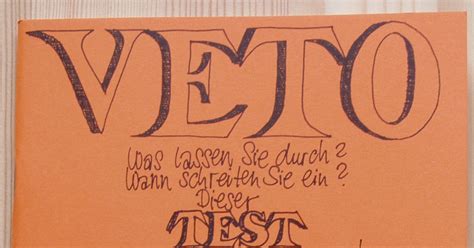 VETO
Was lassen Sie durch?
Wann schreiten Sie ein?
Dieser
TEST